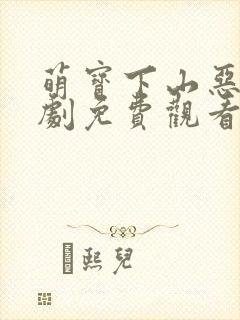 萌寶下山惡
劇免費觀看
熙兒